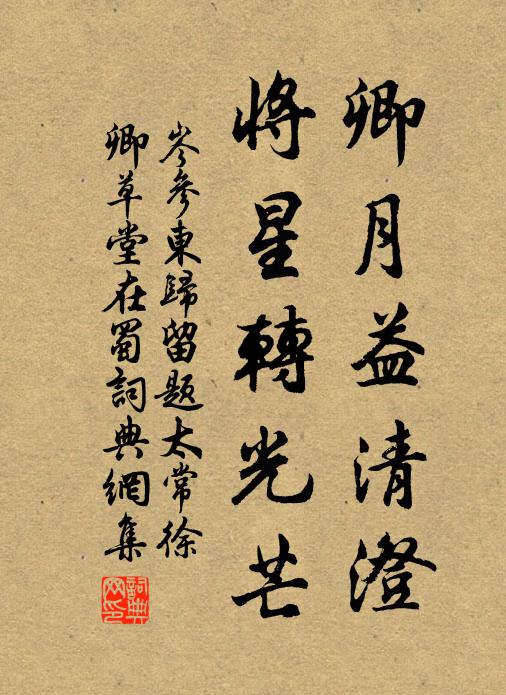 卿月益清澄
將星轉光芒
岑參東歸留題太常徐
卿草堂在蜀詞典網集
詞典网印